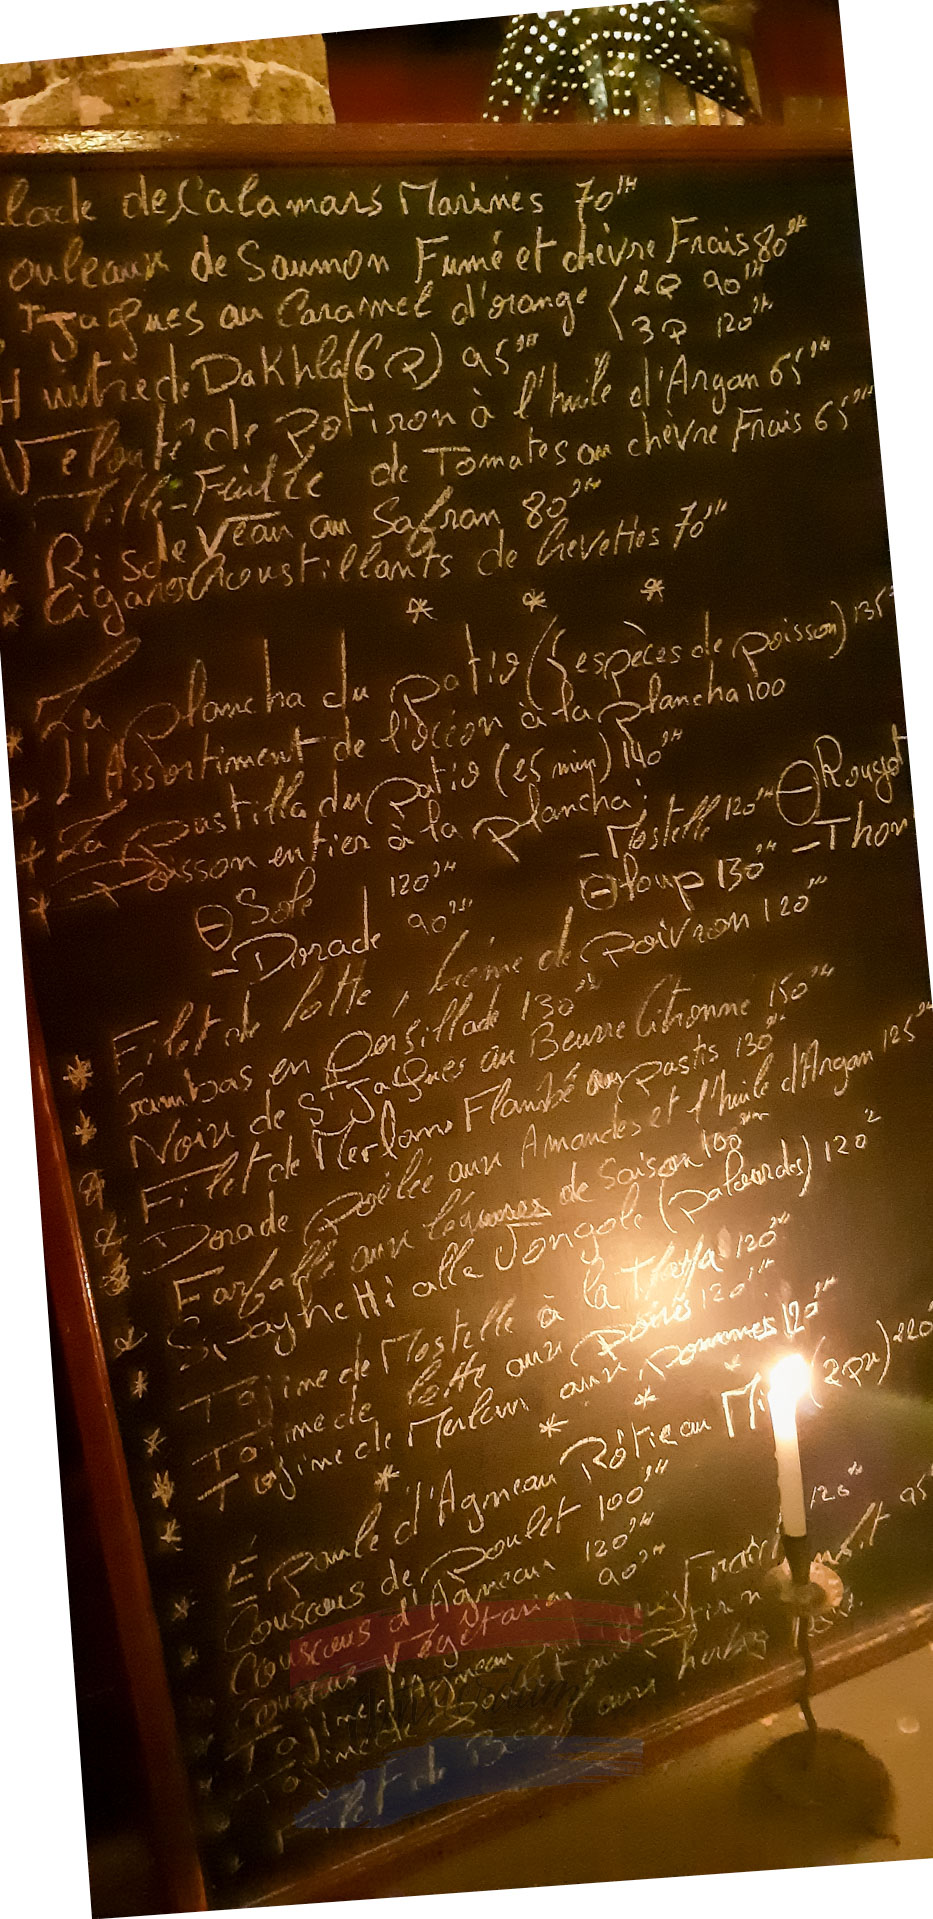 lade de Calamars Marines 70 DH
ouleaux de Saumon Fumé et chèvre Frais 80 DH
St Jacques au Caramel d'orange 2P 90 DH
3P 120 DH
Huitre de Dakhla (6P) 95 DH
Velouté de potiron à l'huile d'Argan 65 DH
Mille-Feuille de Tomates au chèvre Frais 65 DH
* Ris de Veau au Safran 80 DH
* Cigares croustillants de Crevettes 70 DH
* * *
* La plancha du patio ( espèces de poisson) 135
* L'Assortiment de l'océan à la plancha 100
* La pastilla du patio (25 min) 140 DH
* Poisson entier à la plancha:
- Sole 120 DH - Mostelle 120 DH - Rouget
- Dorade 90 DH - loup 130 DH - Thon
* Filet de lotte, crème de poivron 120 DH
* Gambas en persillade 130 DH
* Noix de St Jacques au Beurre Citronné 150 DH
* Filet de Merlan Flambé au pastis 130 DH
* Dorade poêlée aux Amandes et l'huile d'Argan 125 DH
* Farfalle aux légumes de Saison 100 DH
* Spaghetti alle Vongole (palourdes) 120
* Tajine de Mostelle à la 120 DH
* Tajine de lotte aux poires 120 DH
* Tajine de Merlan aux pommes 120 DH
* * * *
* Épaule d'Agneau Rôtie au (2 px) 220
* Couscous de poulet 100 DH
Couscous d'Agneau 120 DH
Couscous Végétarien 90 DH
Tajine d'Agneau 120 DH
Tajine de Poulet au 95
Filet de Bœuf aux herbes